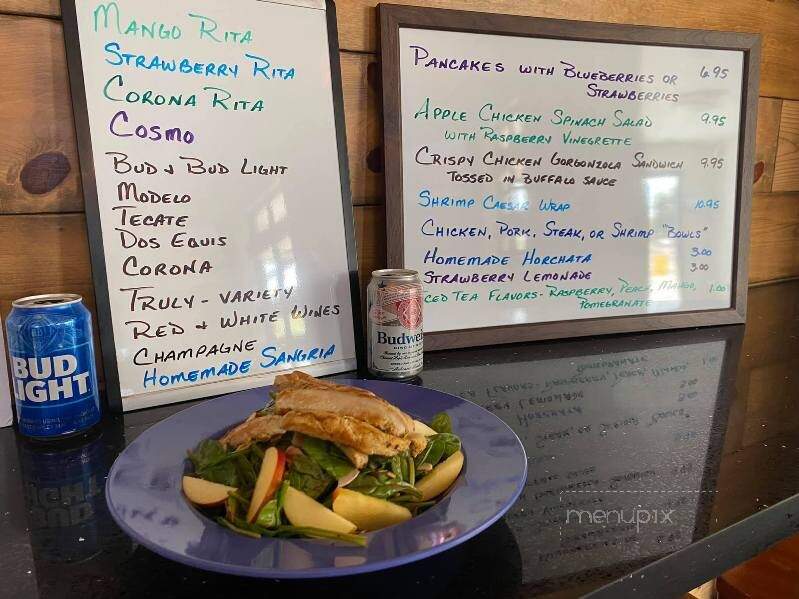 MANGO RITA
STRAWBERRY RITA
CORONA RITA
COSMO
BUD & BUD LIGHT
MODELO
TECATE
DOS EQUIS
CORONA
TRULY - VARIETY
RED & WHITE WINES
CHAMPAGNE
HOMEMADE SANGRIA
PANCAKES WITH BLUEBERRIES OR 6.95
STRAWBERRIES
APPLE CHICKEN SPINACH SALAD 9.95
WITH RASPBERRY VINEGRETTE
CRISPY CHICKEN GORGONZOLA SANDWICH 9.95
TOSSED IN BUFFALO SAUCE
SHRIMP CAESAR WRAP 10.95
CHICKEN, PORK, STEAK, OR SHRIMP "BOWLS"
HOMEMADE HORCHATA 3.00
STRAWBERRY LEMONADE 3.00
ICED TEA FLAVORS - RASPBERRY, PEACH, MANGO, 1.00
POMEGRANATE
BUD
LIGHT
Budweiser
menupix